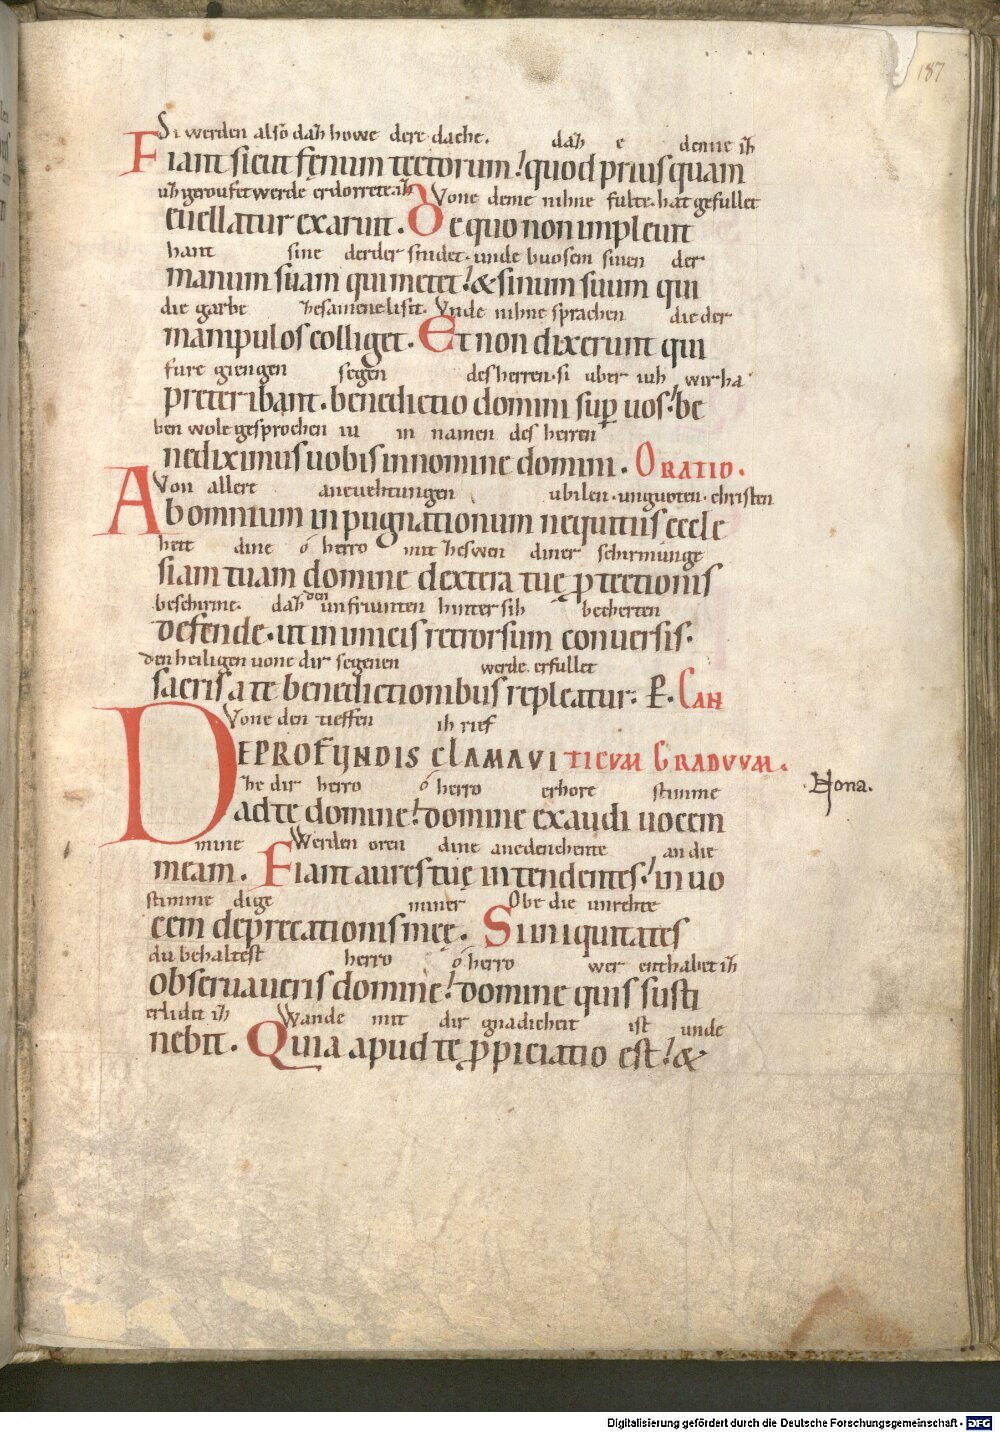 187
Si werden alsо̂ dah howe dere dache. dah e denne ih
Fiant sicut fęnum tectorum! quod priusquam
uh geroufet werde erdorrete ih Vone deme nihne fulte. hat gefullet
euellatur exaruit. De quo non impleuit
hant sine derder snidet. unde buosem sinen der
manum suam qui metet! & sinum suum qui
die garbe hesamene lisit. Vnde nihne sprachen die der
manipulos colliget. Et non dixerunt qui
fure giengen segen des herren. si uber iuh wir ha
preteribant. benedictio domini sup uos! be
ben wole gesprochen iu in namen des herren
nediximus uobis in nomine domini. ORATIO.
Von allere aneuehtungen ubilen. unguoten. christen
Ab omnium inpugnationum nequitiis eccle
heit dine ó herro mit heswen diner schirmunge
siam tuam domine dextera tuę ptectionis
beschirme. dah den unfriunten hinter sih becherten
defende. ut inimicis retrorsum conuersis.
den heiligen uone dir segenen werde erfullet
sacris a te benedictionibus repleatur. P. CAN
Vone den tieffen ih rief
DE PROFUNDIS CLAMAVI TICUM GRADUUM.
he dir herro ó herro erhore stimme
ad te domine! domine exaudi uocem
Nona.
mine Werden oren dine anedenchente an die
meam. Fiant aures tuę intendentes! in uo
stimme dige miner Obe die unrehte
cem deprecationis meę. Si iniquitates
du behaltest herro ó herro wer enthabet ih
obseruaueris domine! domine quis susti
erlidet ih Wande mit dir gnadicheit ist unde
nebit. Quia apud te ppiciatio est! &
Digitalisierung gefördert durch die Deutsche Forschungsgemeinschaft - DFG